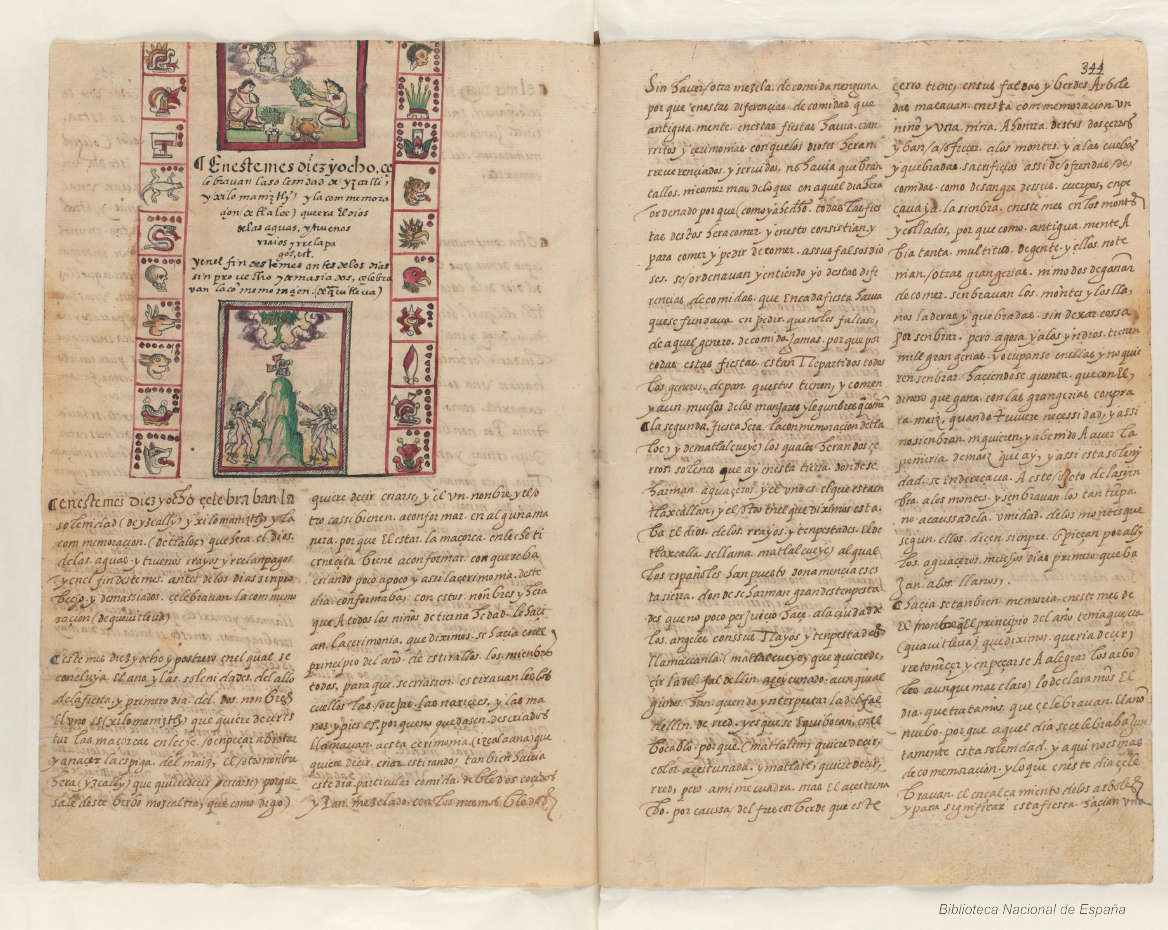 ¶ En este mes diez y ocho, çe
lebravan la solemidad de yzcalli,
y xilomaniztly y la conmemora
çion de tlaloc) que era el dios
de las aguas, y truenos
y en el fin deste mes antes de los dias
sin provecho y demasiados, çelebra
van la comemoraçion. (de quitleva)
¶ en este mes diez y ocho çelebraban la
solemidad (de yzcally) y xilomaniztly y la
conmemoraçion. (de tlaloc) que hera. el dios.
de las. aguas. y truenos y rayos y relanpagos
y en el fin deste mes. antes. de los dias sin pro
becho. y demassiados. çelebraban. la commemo
raçion (de quiuitleua)
¶ este mes diez y ocho y postrero en el qual se
concluya. el año. y las solenidades. del allo
de la fiesta. y primero dia. del. dos. nonbres
el vno es (xilomaniztly) que quiere decir es
tar las maçorcas en leche. o enpeçar a brotar
y a naçer la espiga. del maiz, el otro nonbre
hera (yzcally) que quiere decir, criarse) porque
sale deste berbo mozcaltia) que como digo)
quiere decir criarse, y el vn. nonbre y el o
tro cassi bienen. a conformar. en alguna ma
nera. por que el estar. la maçorca. en leche ti
erneçita biene a conformar. con que se ba
criando poco a poco y assi la çerimonia. deste
dia. conformaba, con estos. nonbres y hera
que A todos los niños de tierna hedad. les haçi
an. la çerimonia. que diximos. se haçia en el
prinçipio del año. de estirallos. los mienbros
todos. para que. se criassen. estiravan les los
cuellos las orejas. las nariçes, y las ma
nos y pies etc. porque no quedasen. descriados
llamavan. a esta çerimonia. (yzcalaana) que
quiere decir, criar estirando. tanbien havia
este dia. particular comida. de bledos cochos
y pan. mezclado. con los mesmos. bledos
344
Sin haver otra mezcla. de comida nenguna
por que en estas diferençias. de comidas que
antigua mente. en estas fiestas havia. eran
rritos y çerimonias. con que los dioses heran.
rreverençiados. y servidos. no havia quebran
tallos, ni comer mas de lo que en aquel dia hera
ordenado por que (como ya he dho. todas las fies
tas destos hera comer. y en esto consistian, y
para comer y pedir de comer. a ssus falsos dio
ses. se ordenavan y entiendo yo destas dife
rençias, de comidas. que En cada fiesta havia
que se fundava. en pedir. que no les faltase,
de aquel genero. de comida Jamas. por que por
todas estas fiestas. estan Repartidos todos
los generos, de pan. questos tienen, y comen
y aun muchos de los manjares y legunbres q comen
¶ la segunda. fiesta hera. la conmemoraçion de tla
loc, y de matlalcueye) los quales. heran dos çe
rros. solenes que ay en esta tierra. donde se.
harman. aguaçeros, y el vno es. el que esta en
tlaxcallan, y el otro
ba el dios. de los. rrayos. y tenpestades. el de
tlaxcalla se llama. matlalcueye) al qual
los españoles han puesto dona mençia. es es
ta sierra. donde se harman grandes tenpesta
des que no poco perjuiçio haçe. a la ciudad de
los angeles con ssus Rayos y tenpestades
llamavanla (matlalcueye) que quiere de,
çir la del. faldellin. açeytunado. aun que al
gunos. han. querido ynterpretar la del fal
dellin. de rred. y es que se Equibocan, en el
bocablo. porque. (matlalin) quiere deçir,
color. açeitunada. y matlatl, quiere deçir,
rred, pero a mi me cuadra. mas El açeytuna
do. por caussa, del frescor berde. que este
çerro tiene, en sus faldas y berdes Arbole
das matavan. en esta conmemoraçion. vn
niño y vna. niña. A honrra. destos dos çerros
y ban a ofreçer. a los montes. y a las cuebas
y quebradas. sacrifiçios assi de ofrendas de
comidas. como. de sangre de sus. cuerpos, enpe
çavase. la sienbra. en este mes en los montes
y collados, por que como. antigua. mente A
bia tanta. multitud. de gente. y ellos no te
nian, otras grangerias. ni modos de ganar
de comer. senbravan los. montes y los lla,
nos laderas y quebradas. sin dexar cossa
por senbrar. pero. agora. ya los yndios. tienen
mill grangerias y ocupanse en ellas y no quie
ren senbrar. haçiendose. quenta. que con El,
dinero que ganan. con las grangerias conpra
ran. maiz, quando tuviere neçessidad, y assi
no sienbran. ni quieren, y abemos A aver la
penuria. de maiz que ay, y assi esta soleni
dad. se endereçava. A este de la sien
bra. a los montes. y senbravan. los tan tenpra,
no a caussa de la. vmidad. de los montes que
segun. ellos. diçen sienpre. Enpieçan por ally
los. aguaçeros, muchos dias primero. que ba
xan. a los llanos,.
¶ haçia se tanbien. memoria. en este mes. de
El prinçipio del año tema que era
(quauitleua) que diximos. queria deçir)
rretoñeçer y enpeçarse A alegrar los arbo)
les aunque mas claro) lo declaramos El
dia. que tratamos. que çelebravan. El año
nuebo. por que. aquel dia. se çelebraba Jun
tamente esta solenidad. y aqui no es mas
de comemoraçion. y lo que en este dia çele
bravan. el ensalçamiento de los arboles
y para significar esta fiesta. haçian vna
Biblioteca Nacional de España